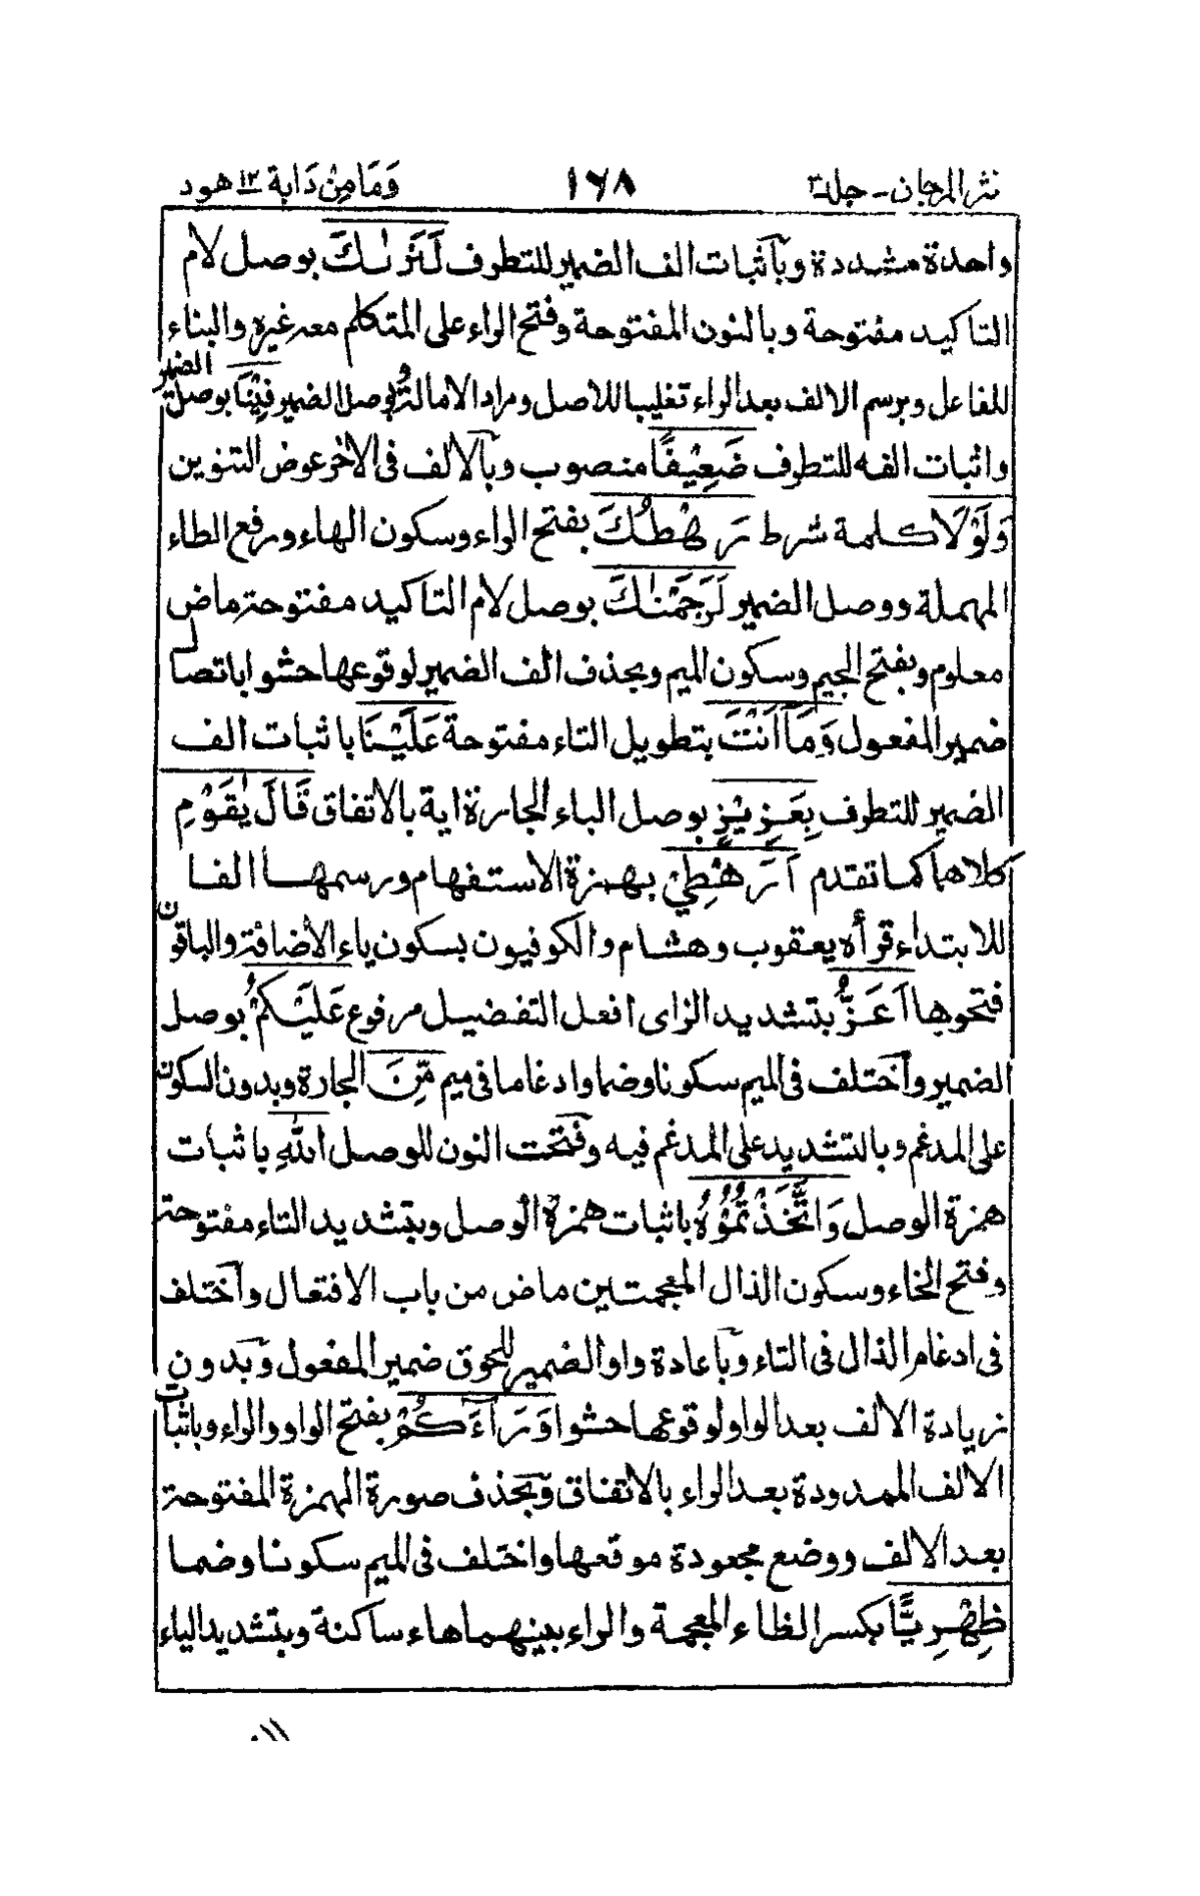 نثر المرجان ـ جلد ٣
١٦٨
وَمَا مِنْ دَابة ١٢ هود
واحدة مشددة وبآثبات الف الضمير للتطرف لَنَرٰىكَ بوصل لام
التاكيد مفتوحة وبالنون المفتوحة وفتح الراء على المتكلم معه غيره والبناء
للفاعل وبرسم الالف بعد الراء تغليبا للاصل ومراد الامالة وبوصل الضمير فِيْنَا بوصل الضمير
واثبات الفه للتطرف ضَعِيْفًا منصوب وبآلالف فى الاخر عوض التنوين
وَلَوْلَا كلمة شرط رَهْطُكَ بفتح الراء وسكون الهاء ورفع الطاء
المهملة ووصل الضمير لَرَجَمْنٰكَ بوصل لام التاكيد مفتوحة ماض
معلوم وبفتح الجيم وسكون الميم وبحذف الف الضمير لوقوعها حشوا باتصال
ضمير المفعول وَمَآ اَنْتَ بتطويل التاء مفتوحة عَلَيْنَا باثبات الف
الضمير للتطرف بِعَزِيْزٍ بوصل الباء الجارة اية بالاتفاق قَالَ يٰقَوْمِ
كلاهما كما تقدم اَرَهْطِيْ بهمزة الاستفهام ورسمها الفا
للابتداء قرأه يعقوب وهشام والكوفيون بسكون ياء الأضافة والباقون
فتحوها اَعَزُّ بتشديد الزاى افعل التفضيل مرفوع عَلَيْكُمْ بوصل
الضمير وآختلف فى الميم سكونا وضما وادغاما فى ميم مِّنَ الجارة وبدون السكون
على المدغم وبالتشديد على المدغم فيه وفتحت النون للوصل اللهِ باثبات
همزة الوصل وَاتَّخَذْتُمُوْهُ باثبات همزة الوصل وبتشديد التاء مفتوحة
وفتح الخاء وسكون الذال المعجمتين ماض من باب الافتعال وآختلف
فى ادغام الذال فى التاء وبآعادة واو الضمير للحوق ضمير المفعول وبدون
زيادة الالف بعد الواو لوقوعها حشوا وَرَآءَكُمْ بفتح الواو والراء وباثبات
الالف الممدودة بعد الراء بالاتفاق وبحذف صورة الهمزة المفتوحة
بعد الالف ووضع مجعودة موقعها واختلف فى الميم سكونا وضما
ظِهْرِيًّا بكسر الظاء المعجمة والراء بينهما هاء ساكنة وبتشديد الياء